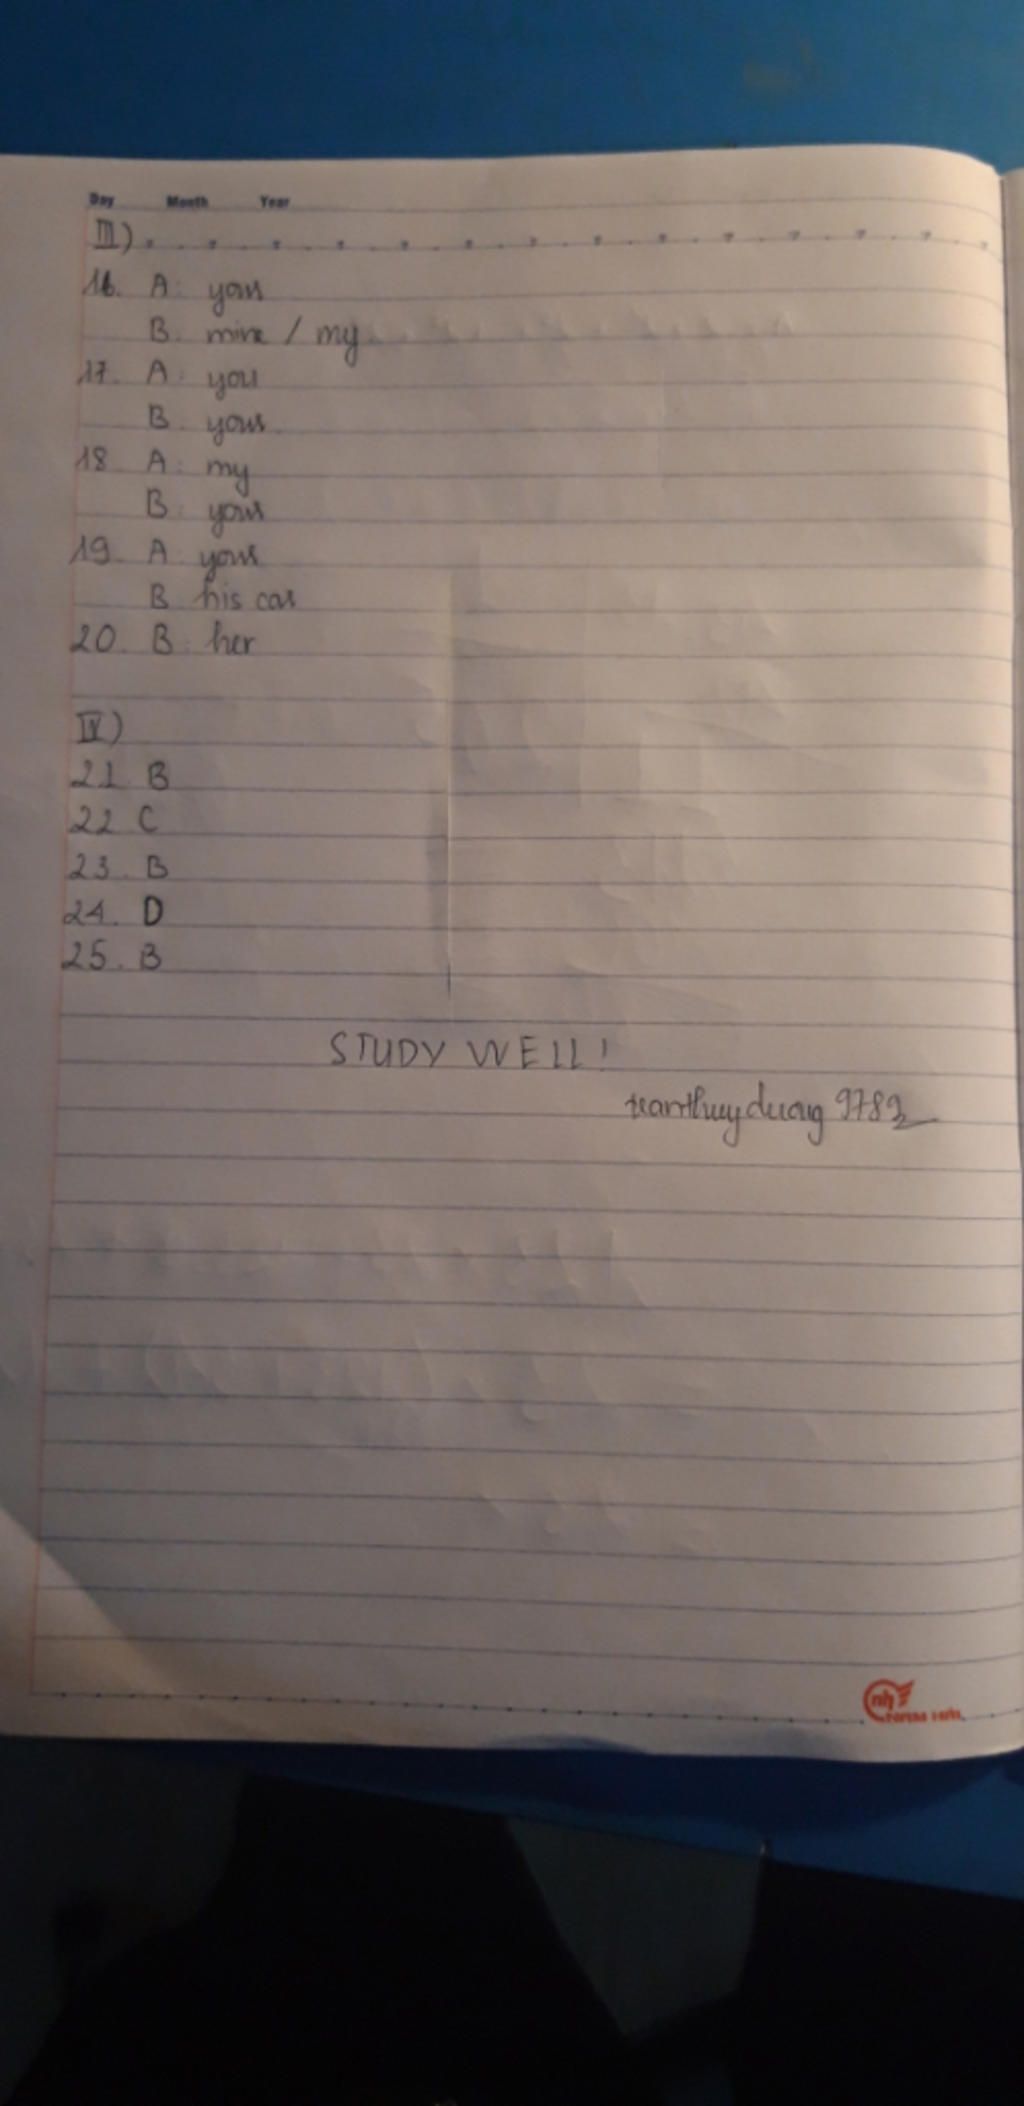 Day Month Year
III)
16. A: your
B. mine / my
17. A: you
B. your
18 A: my
B: your
19. A: your
B his car
20. B: her
IV)
21 B
22 C
23. B
24. D
25. B
STUDY WELL!
tranthuyduong 9782
nh